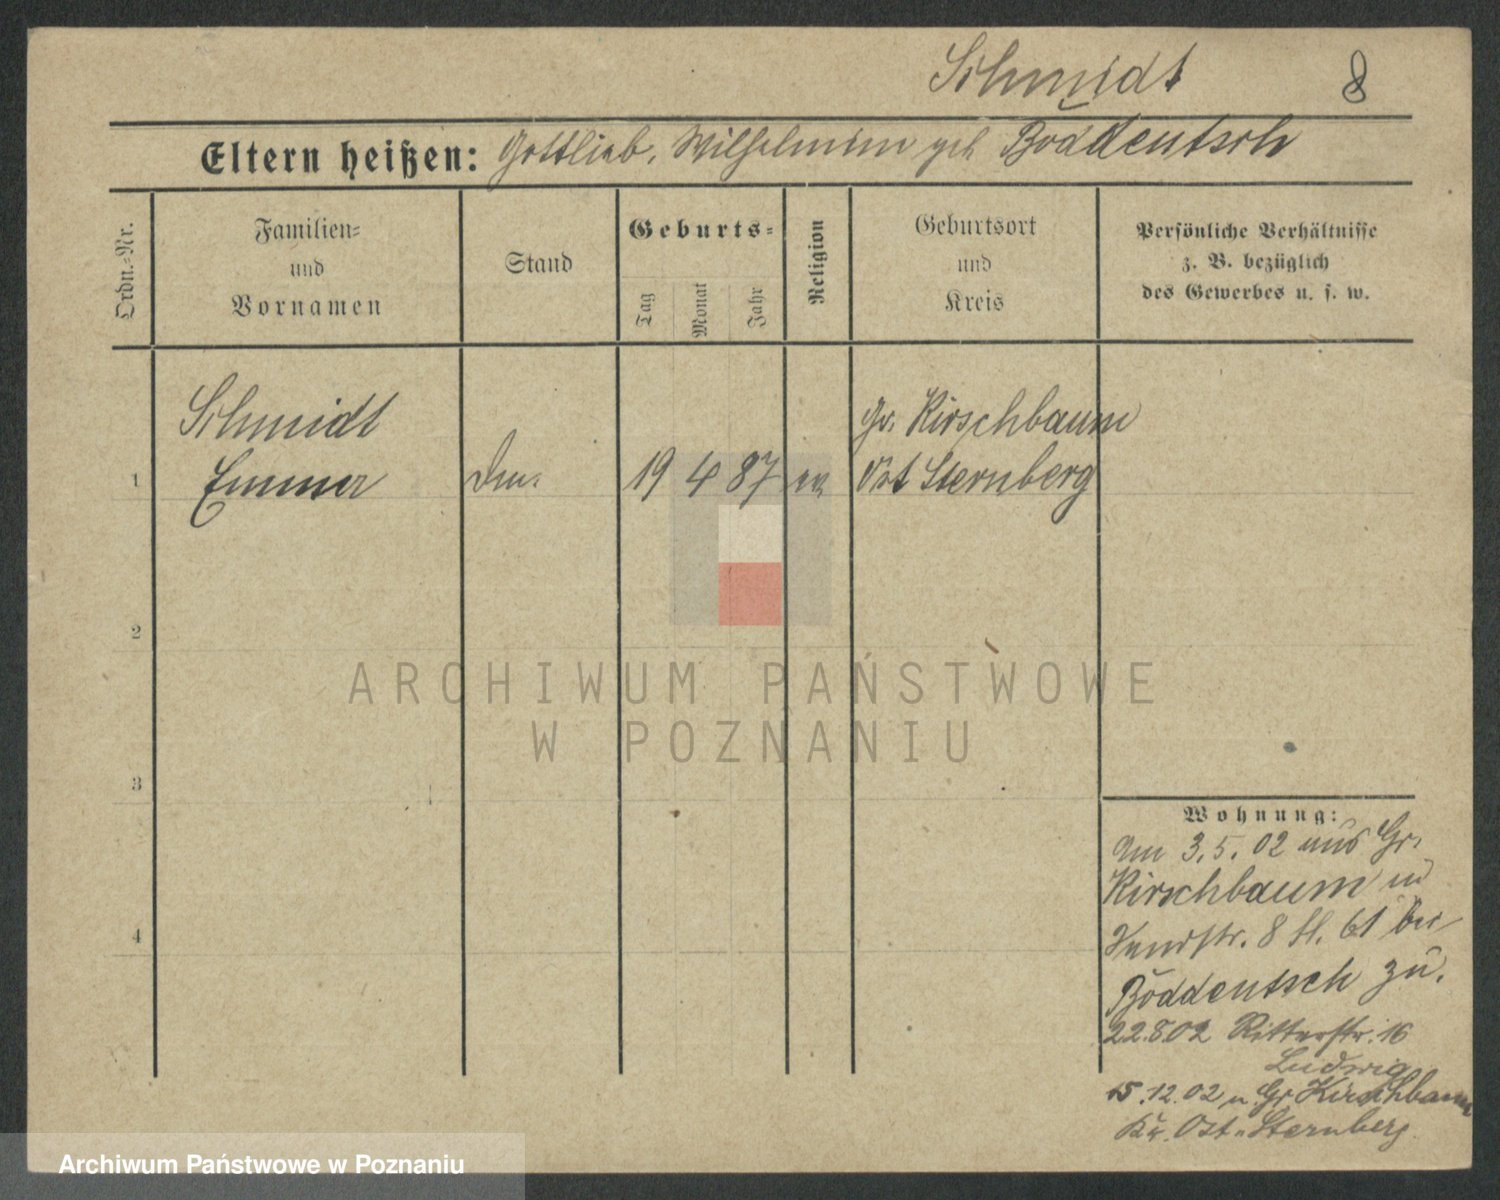 Schmidt 8
Eltern heißen: Gottlieb, Wilhelmine geb Böddeutsch
Ordn.-Nr.
Familien-
und
Vornamen
Stand
Geburts-
Tag
Monat
Jahr
Religion
Geburtsort
und
Kreis
Persönliche Verhältnisse
z. B. bezüglich
des Gewerbes u. s. w.
Schmidt Gr. Kirschbaum
1 19 4 87 ev Ost Sternberg
2
ARCHIWUM PAŃSTWOWE
W POZNANIU
3
Wohnung:
Am 3.5.02 aus Gr.
Kirschbaum in
8 61 bei
Böddeutsch zu.
22.8.02 Ritterstr. 16
Ludwig
15.12.02 n. Gr Kirschbaum
Kr. Ost-Sternberg
Archiwum Państwowe w Poznaniu